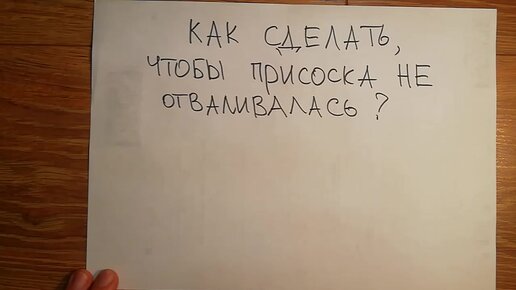 КАК СДЕЛАТЬ,
ЧТОБЫ ПРИСОСКА НЕ
ОТВАЛИВАЛАСЬ?